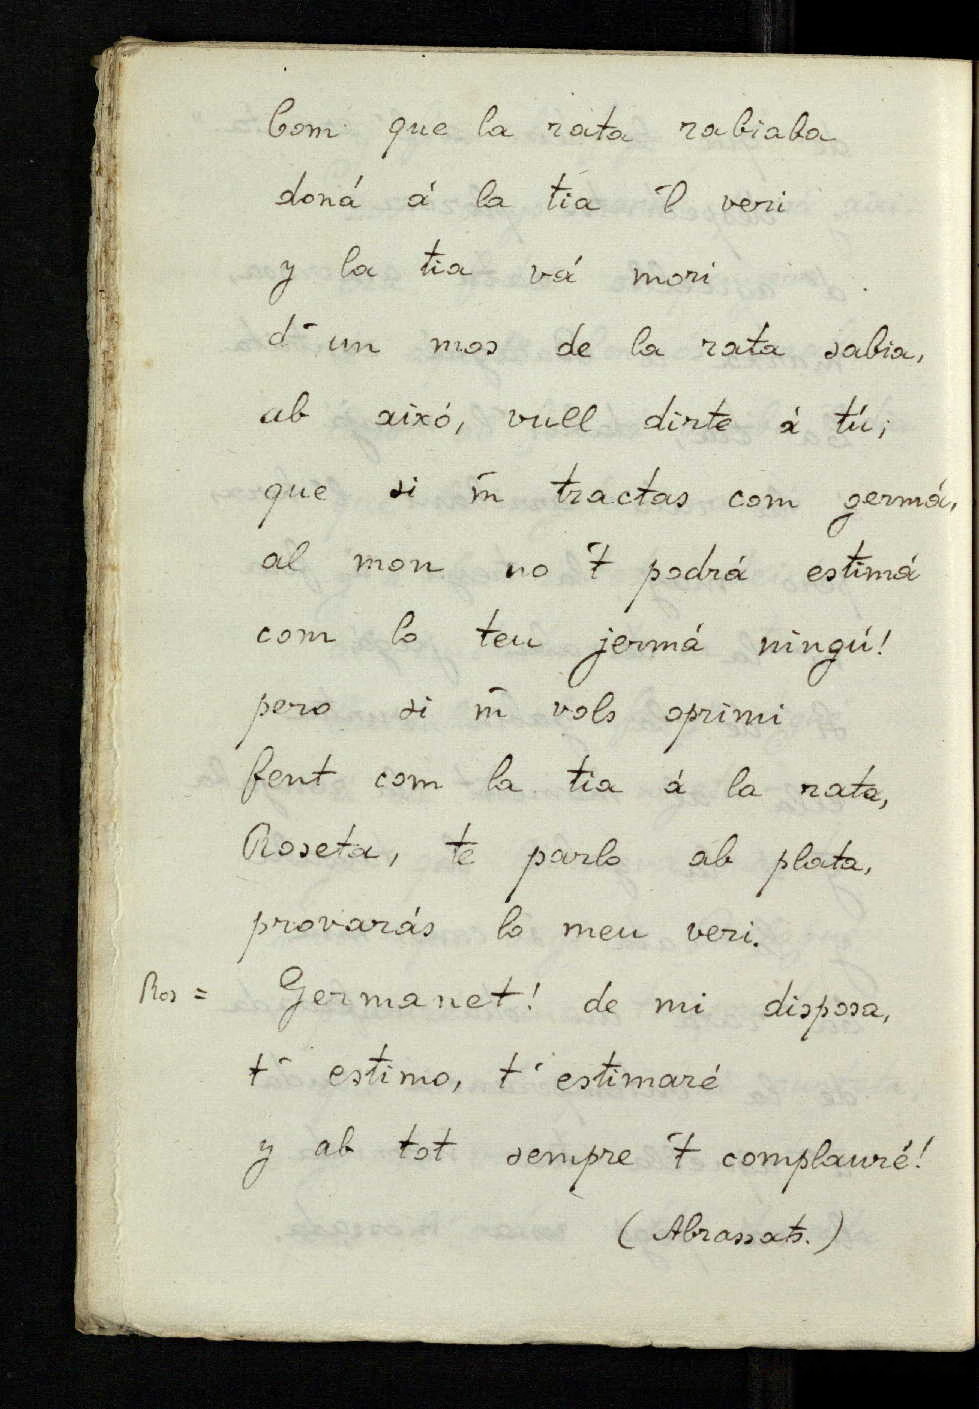 Com que la rata rabiaba
doná á la tia 'l veri
y la tia vá mori
d'un mos de la rata sabia,
ab aixó, vull dirte á tú;
que si 'm tractas com germá,
al mon no 't podrá estimá
com lo teu jermá ningú!
pero si 'm vols oprimi
fent com la tia á la rata,
Roseta, te parlo ab plata,
provarás lo meu veri.
Ros = Germanet! de mi disposa,
t' estimo, t' estimaré
y ab tot sempre 't complauré!
(Abrassats.)